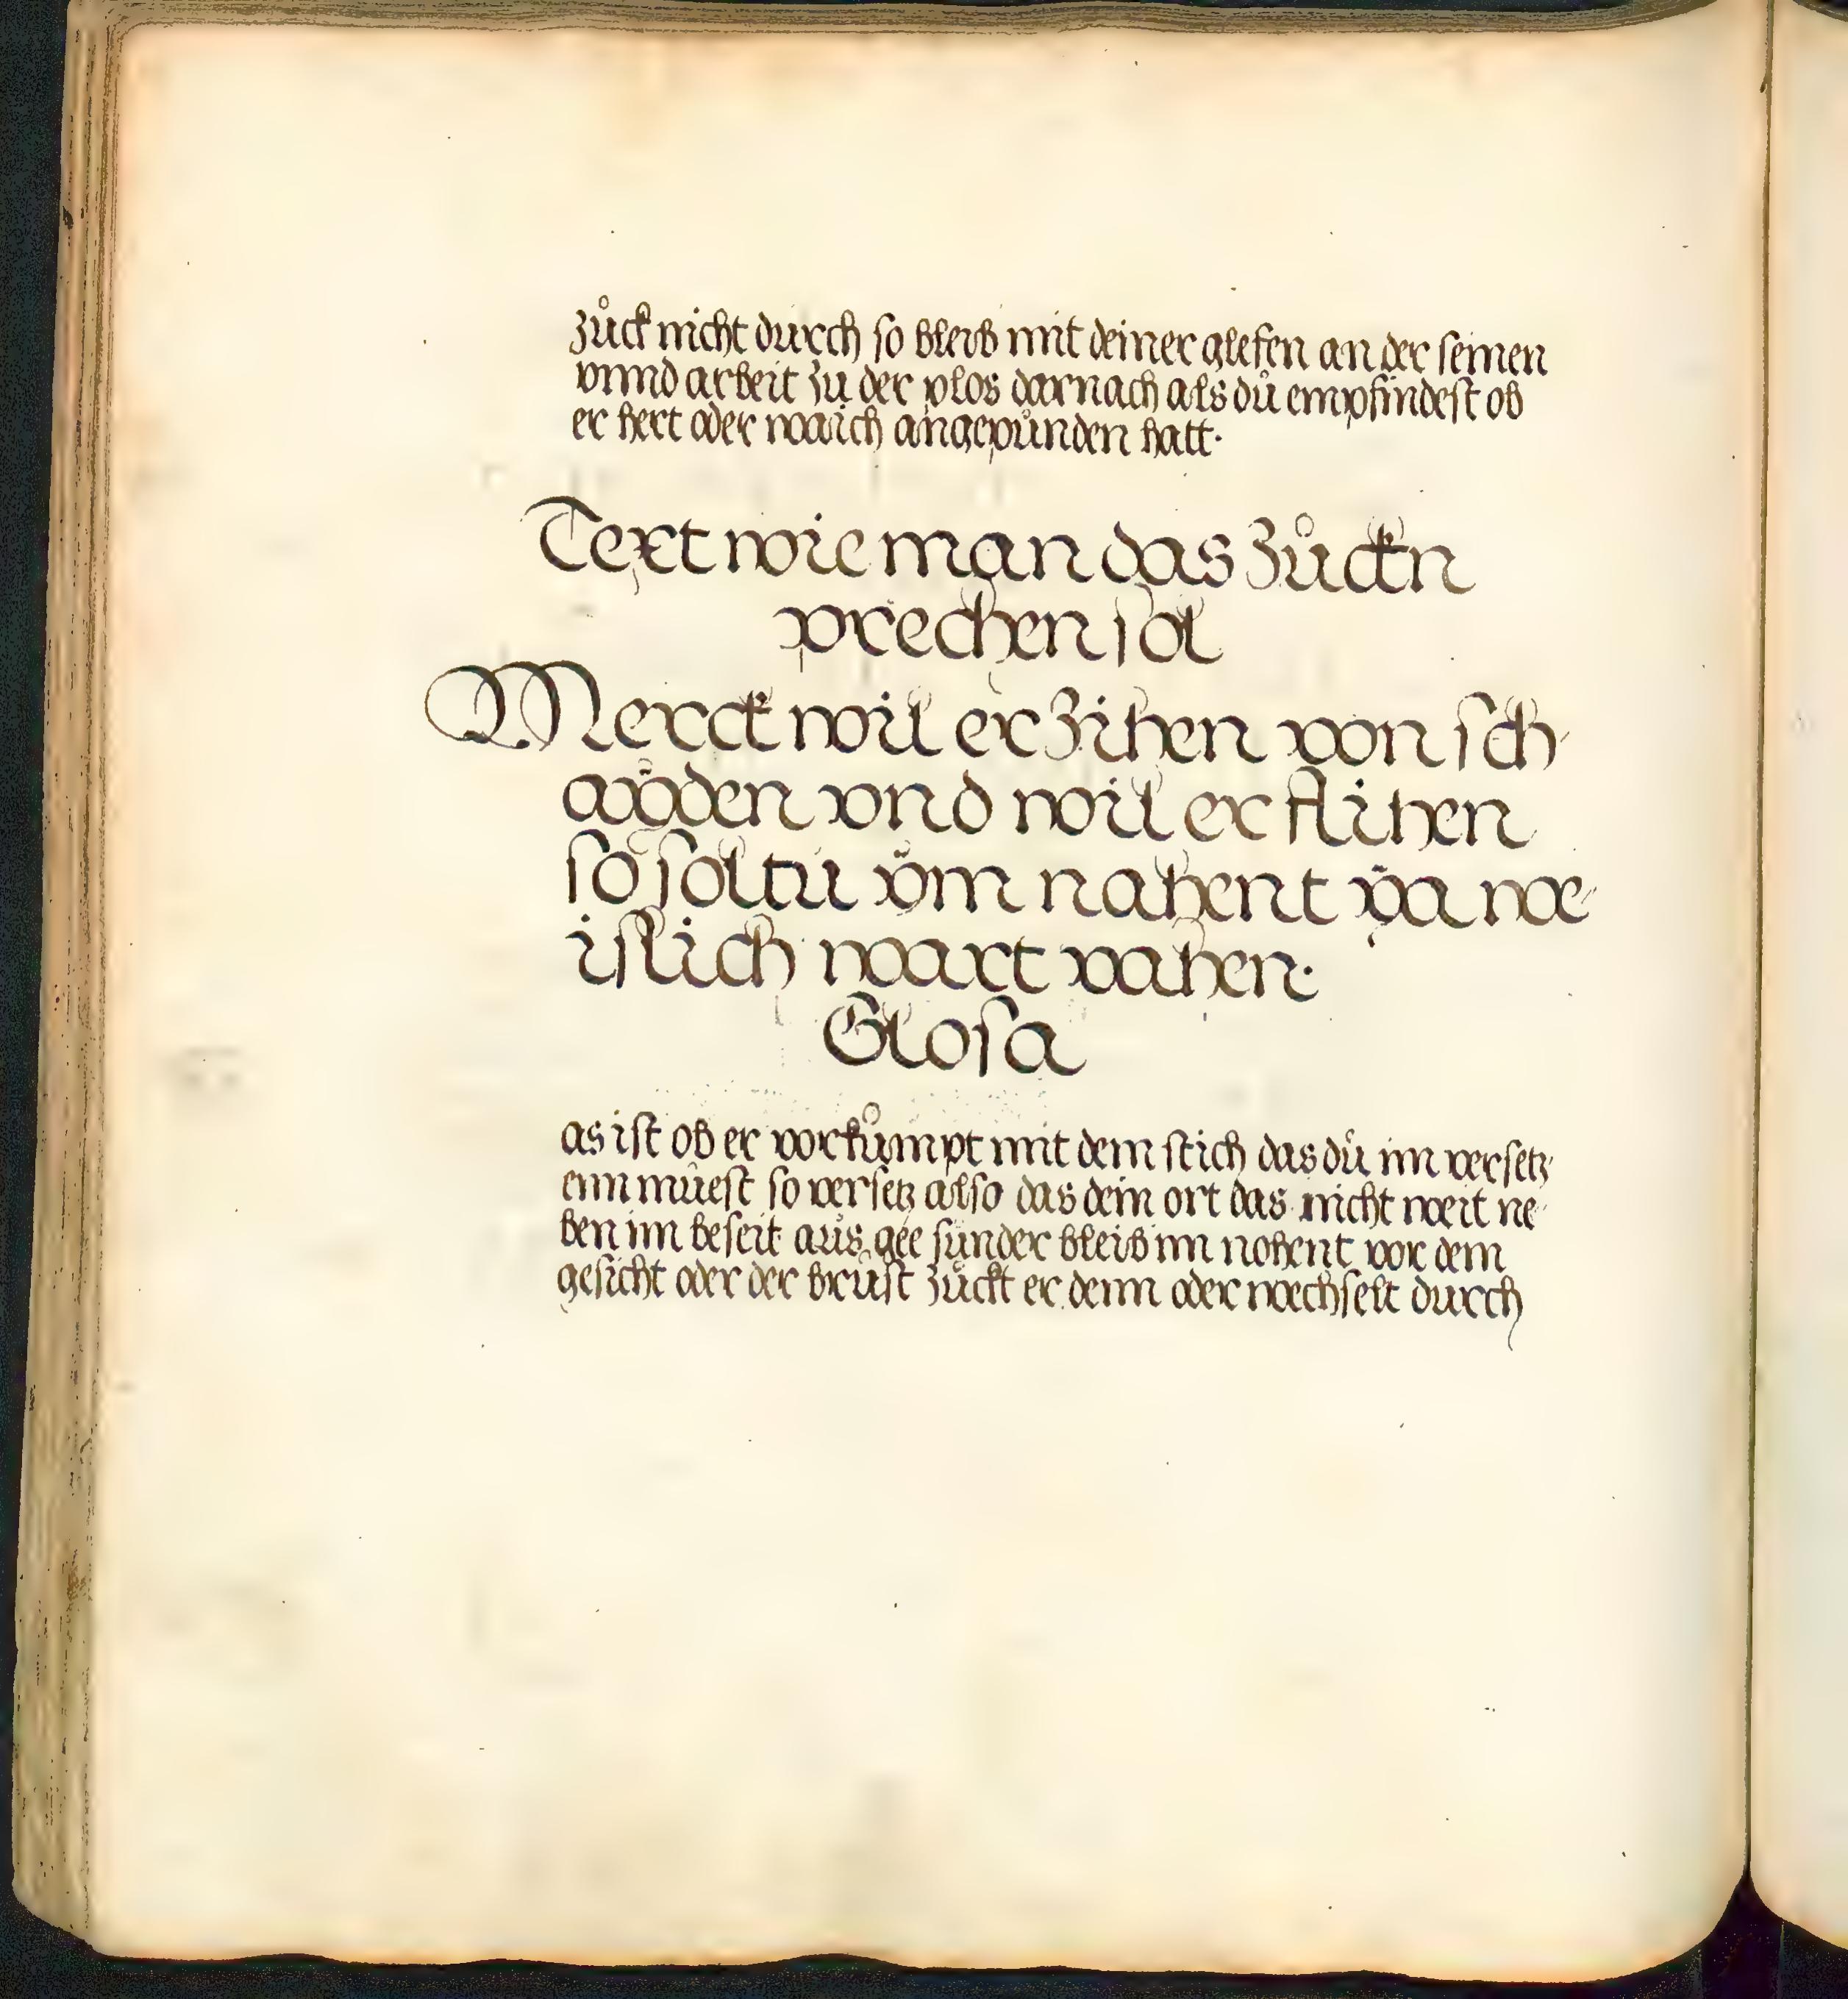 zůck nicht durch so bleib mit deiner glefen an der seinen
vnnd arbeit zu der plos darnach als dů empfindest ob
er hert oder waich angepůnden hatt·
Text wie man das Zůckn
prechen sol
Merck wil er zihen von sch
ayden vnd wil er flihen
so soltu ym nahent ya we
islich wart vahen·
Glosa
as ist ob er vorkůmpt mit dem stich das dů im versetz
enn můest so versetz also das dein ort das nicht weit ne
ben im beseit aus gee sunder bleib im nohent vor dem
gesicht oder der brůst zůckt er denn oder wechselt durch